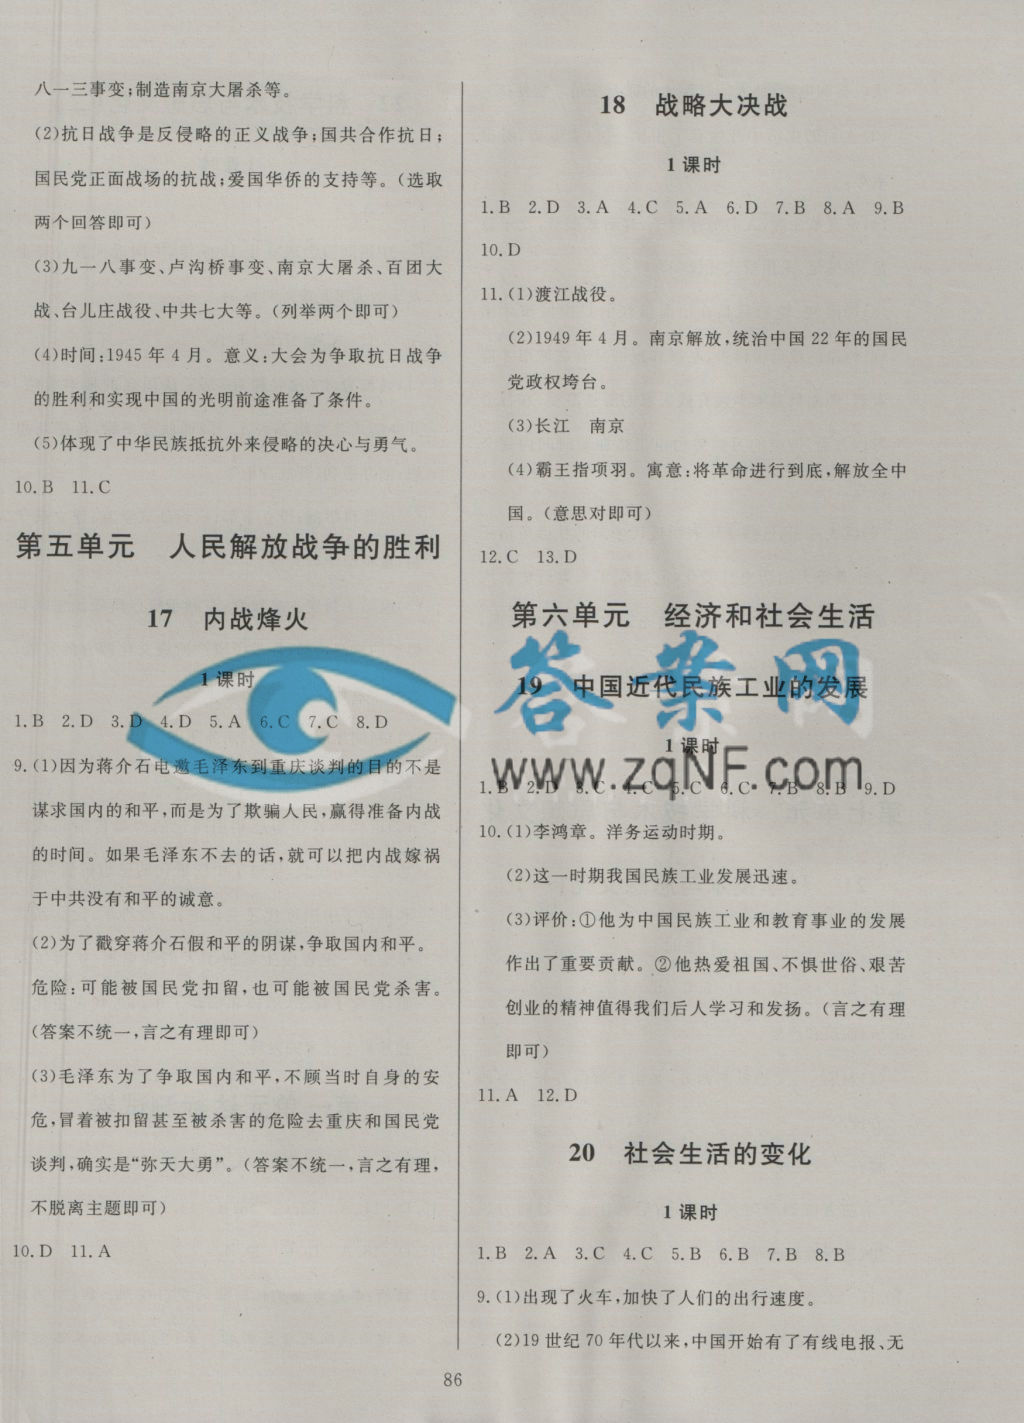 八一三事变;制造南京大屠杀等。
(2)抗日战争是反侵略的正义战争;国共合作抗日;
国民党正面战场的抗战;爱国华侨的支持等。(选取
两个回答即可)
(3)九一八事变、卢沟桥事变、南京大屠杀、百团大
战、台儿庄战役、中共七大等。(列举两个即可)
(4)时间:1945 年 4 月。意义:大会为争取抗日战争
的胜利和实现中国的光明前途准备了条件。
(5)体现了中华民族抵抗外来侵略的决心与勇气。
10.B 11.C
第五单元 人民解放战争的胜利
17 内战烽火
1课时
1.B 2.D 3.D 4.D 5.A 6.C 7.C 8.D
9.(1)因为蒋介石电邀毛泽东到重庆谈判的目的不是
谋求国内的和平,而是为了欺骗人民,赢得准备内战
的时间。如果毛泽东不去的话,就可以把内战嫁祸
于中共没有和平的诚意。
(2)为了戳穿蒋介石假和平的阴谋,争取国内和平。
危险:可能被国民党扣留,也可能被国民党杀害。
(答案不统一,言之有理即可)
(3)毛泽东为了争取国内和平,不顾当时自身的安
危,冒着被扣留甚至被杀害的危险去重庆和国民党
谈判,确实是“弥天大勇”。(答案不统一,言之有理,
不脱离主题即可)
10.D 11.A
18 战略大决战
1课时
1.B 2.D 3.A 4.C 5.A 6.D 7.B 8.A 9.B
10.D
11.(1)渡江战役。
(2)1949 年 4 月。南京解放,统治中国 22 年的国民
党政权垮台。
(3)长江 南京
(4)霸王指项羽。寓意:将革命进行到底,解放全中
国。(意思对即可)
12.C 13.D
第六单元 经济和社会生活
答案网
19 中国近代民族工业的发展
1课时
www.zqNF.com
1.B 2.D 3.C 4.C 5.C 6.C 7.B 8.B 9.D
10.(1)李鸿章。洋务运动时期。
(2)这一时期我国民族工业发展迅速。
(3)评价:①他为中国民族工业和教育事业的发展
作出了重要贡献。②他热爱祖国、不惧世俗、艰苦
创业的精神值得我们后人学习和发扬。(言之有理
即可)
11.A 12.D
20 社会生活的变化
1课时
1.B 2.A 3.C 4.C 5.B 6.B 7.B 8.B
9.(1)出现了火车,加快了人们的出行速度。
(2)19 世纪 70 年代以来,中国开始有了有线电报、无
86